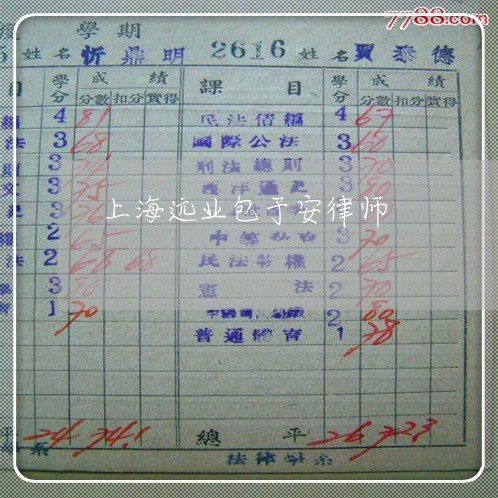 7788.com
學期
姓名 忻鼎明 2616 姓名 賈泰德
目 學分 成績 課目 學分 成績
分數 扣分 實得 分數 扣分 實得
4 81 民法債編 4 67
法 3 68 國際公法 3 60
3 刑法總則 3 70
3 75 西洋通史 3 80
3 3
上海远业包于安律师
2 65 3 70
法 2 68 68 民法物權 2 65
3 80 憲法 2 70
1 70 2 80
普通體育 1 78
平 24 74.1 總平 26 72.3
系 法律學系